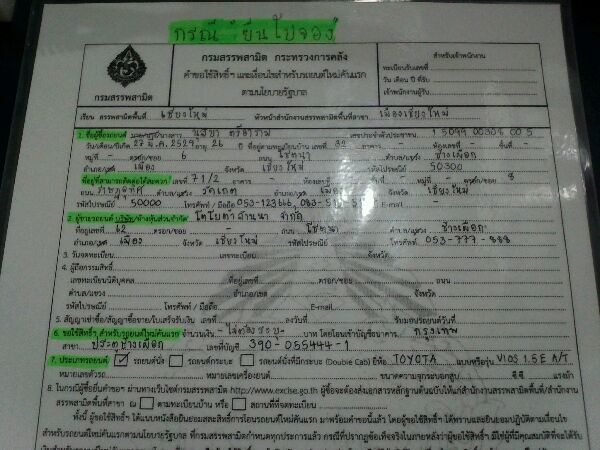 กรณี "ยื่นใบจอง"
กรมสรรพสามิต
กรมสรรพสามิต กระทรวงการคลัง
คำขอใช้สิทธิ์ฯ และเงื่อนไขสำหรับรถยนต์ใหม่คันแรก
ตามนโยบายรัฐบาล
สำหรับเจ้าพนักงาน
ทะเบียนรับเลขที่
วัน เดือน ปี ที่รับ
เจ้าพนักงานผู้รับ
เรียน สรรพสามิตพื้นที่ เชียงใหม่ หัวหน้าสำนักงานสรรพสามิตพื้นที่สาขา เมืองเชียงใหม่
1. ชื่อผู้ซื้อรถยนต์ เลขประจำตัวประชาชน 1 5099 00306 00 5
วัน/เดือน/ปีเกิด 27 มี.ค. 2529 อายุ 26 ปี ที่อยู่ตามทะเบียนบ้าน เลขที่ อาคาร - ห้องเลขที่ - ชั้นที่ -
หมู่ที่ - ตรอก/ซอย 6 ถนน โชตนา ตำบล/แขวง ช้างเผือก
อำเภอ/เขต เมือง จังหวัด เชียงใหม่ รหัสไปรษณีย์ 50300
ที่อยู่ที่สามารถติดต่อได้สะดวก เลขที่ 71/2 อาคาร - ห้องเลขที่ หมู่ที่ - ตรอก/ซอย 8
ถนน ตำบล/แขวง วัดเกต อำเภอ/เขต เมือง จังหวัด เชียงใหม่
รหัสไปรษณีย์ 50000 โทรศัพท์ / มือถือ 053-123666,
2. ผู้ขายรถยนต์ บริษัท/ห้างหุ้นส่วนจำกัด โตโยต้าล้านนา จำกัด
ที่อยู่เลขที่ 62 ตรอก/ซอย - ถนน โชตนา ตำบล/แขวง ช้างเผือก
อำเภอ/เขต เมือง จังหวัด เชียงใหม่ รหัสไปรษณีย์ โทรศัพท์ 053-777-888
3. วันจดทะเบียน เลขทะเบียน จังหวัด
4. ผู้ถือกรรมสิทธิ์
เลขทะเบียนนิติบุคคล ที่อยู่เลขที่ ตรอก/ซอย ถนน
ตำบล/แขวง อำเภอ/เขต จังหวัด
รหัสไปรษณีย์ โทรศัพท์ / มือถือ E-mail
5. สัญญาเช่าซื้อ/สัญญาซื้อขาย/ใบเสร็จรับเงิน เลขที่ ลงวันที่ วันรับมอบรถยนต์วันที่
6. ขอใช้สิทธิ์ฯ สำหรับรถยนต์ใหม่คันแรก จำนวนเงิน -ไม่ต้องระบุ- บาท โดยโอนเข้าบัญชีธนาคาร กรุงเทพ
สาขา ประตูช้างเผือก เลขที่บัญชี 390-055444-1
7. ประเภทรถยนต์ ✓ รถยนต์นั่ง รถยนต์กระบะ รถยนต์นั่งที่มีกระบะ (Double Cab) ยี่ห้อ TOYOTA แบบหรือรุ่น VIOS 1.5E A/T
หมายเลขตัวรถ หมายเลขเครื่องยนต์ ขนาดความจุกระบอกสูบ ซี.ซี. แรงม้า
8. ในกรณีผู้ซื้อยื่นคำขอฯ ผ่านทางเว็บไซต์กรมสรรพสามิต http://www.excise.go.th ผู้ซื้อจะต้องส่งเอกสารหลักฐานต้นฉบับให้แก่สำนักงานสรรพสามิตพื้นที่/สำนักงาน
สรรพสามิตพื้นที่สาขา ณ ตามทะเบียนบ้าน หรือ สถานที่ที่จดทะเบียน
ทั้งนี้ ผู้ขอใช้สิทธิ์ฯ ได้แนบหนังสือยินยอมสละสิทธิ์การโอนรถยนต์คันแรก มาพร้อมคำขอนี้แล้ว โดยผู้ขอใช้สิทธิ์ฯ ได้ทราบและยินยอมปฏิบัติตามเงื่อนไข
สำหรับรถยนต์ใหม่คันแรก ตามนโยบายรัฐบาล ที่กรมสรรพสามิตกำหนดทุกประการแล้ว